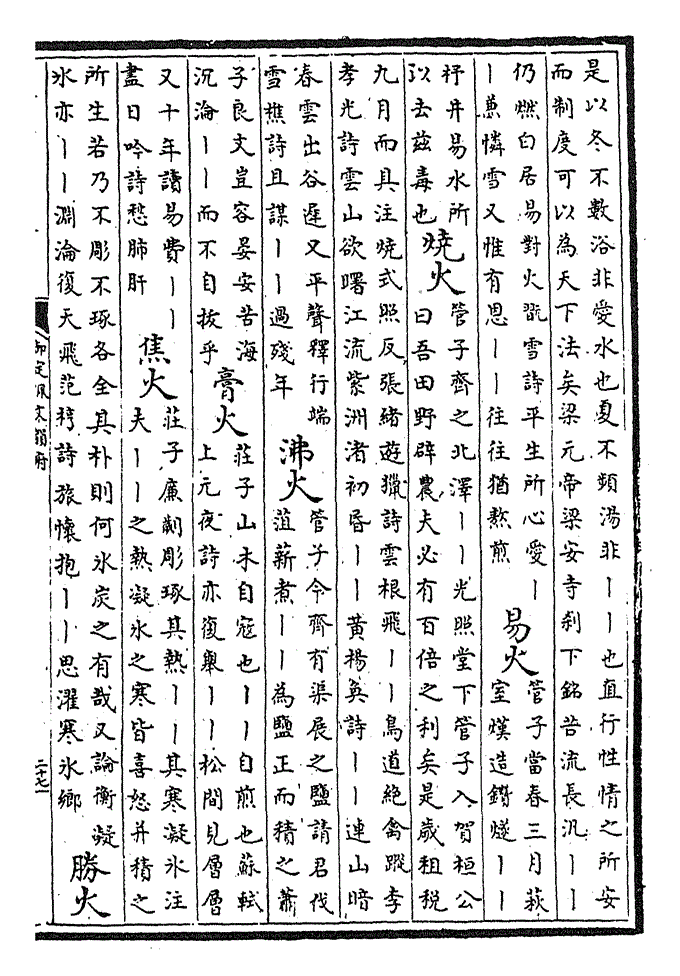 是以冬不數浴非愛水也夏不頻湯非丨丨也直行性情之所安
而制度可以為天下法矣梁元帝梁安寺刹下銘苦流長汎丨丨
仍燃白居易對火翫雪詩平生所心愛丨
丨兼憐雪又惟有思丨丨往往猶熬煎
易火
管子當春三月萩
室熯造鑽燧丨丨
杼井易水所
以去兹毒也
燒火
管子齊之北澤丨丨光照堂下管子入賀桓公
曰吾田野辟農夫必有百倍之利矣是歲租稅
九月而具注燒式照反張緒遊獵詩雲根飛丨丨鳥道絶禽蹤李
孝光詩雲山欲曙江流紫洲渚初昏丨丨黄楊奐詩丨丨連山暗
春雲出谷遲又平聲釋行端
雪樵詩且謀丨丨過殘年
沸火
管子今齊有渠展之鹽請君伐
菹薪煮丨丨為鹽正而積之蕭
子良文豈容晏安苦海
沉淪丨丨而不自拔乎
膏火
莊子山木自寇也丨丨自煎也蘇軾
上元夜詩亦復舉丨丨松間見層層
又十年讀易費丨丨
盡日吟詩愁肺肝
焦火
莊子廉劌彫琢其熱丨丨其寒凝氷注
夫丨丨之熱凝氷之寒皆喜怒并積之
所生若乃不彫不琢各全其朴則何氷炭之有哉又論衡凝
氷亦丨丨淵淪復天飛范梈詩旅懷抱丨丨思濯寒氷鄉
勝火
御定佩文韻府
二十七